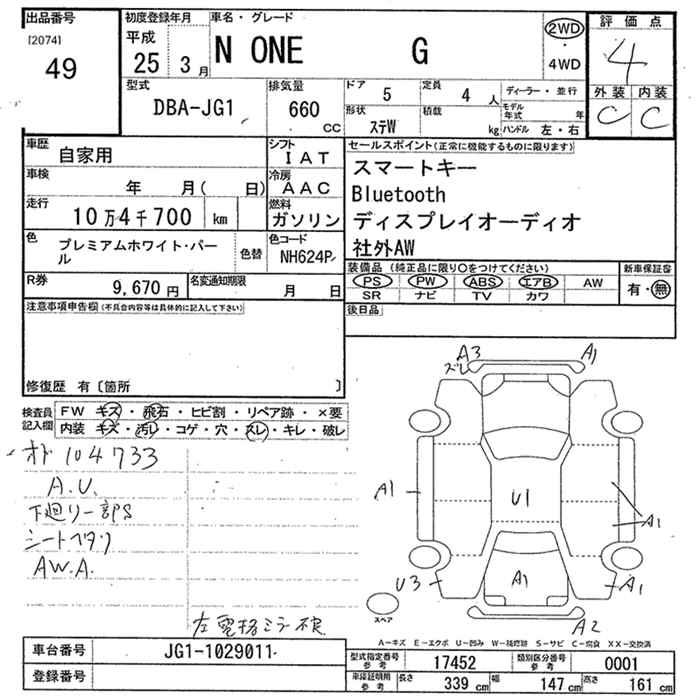 出品番号
[2074]
49
初度登録年月
平成
25 3月
車名・グレード
N ONE G
2WD
・
4WD
評価点
4
外装 内装
C C
型式
DBA-JG1
排気量
660
CC
ドア
5
定員
4 人
ディーラー・並行
形状
ステW
積載
kg
モデル年式 年
ハンドル 左・右
車歴
自家用
シフト
IAT
車検
年 月( 日)
冷房
AAC
走行
10万4千700 km
燃料
ガソリン
色
プレミアムホワイト・パール
色替
色コード
NH624P
R券
9,670 円
名変通知期限
月 日
セールスポイント(正常に機能するものに限ります)
スマートキー
Bluetooth
ディスプレイオーディオ
社外AW
装備品 (純正品に限り○をつけてください)
PS PW ABS エアB AW
SR ナビ TV カワ
新車保証書
有・無
後日品
注意事項申告欄(不具合内容等は具体的に記入して下さい)
修復歴 有〔箇所 〕
検査員記入欄
FW キズ・飛石・ヒビ割・リペア跡・×要
内装 キズ・汚レ・コゲ・穴・スレ・キレ・破レ
オド 104733
A.U.
下廻り一部S
シートヘタリ
AW.A.
左電格ミラー不良
A3
ズレ
A1
A1
U1
A1
A1
U3
A1
A2
スペア
A-キズ E-エクボ U-凹み W-補修跡 S-サビ C-腐食 XX-交換済
車台番号
JG1-1029011
登録番号
型式指定番号
参考
17452
類別区分番号
参考
0001
車検証明用
参考
長さ
339 cm
幅
147 cm
高さ
161 cm